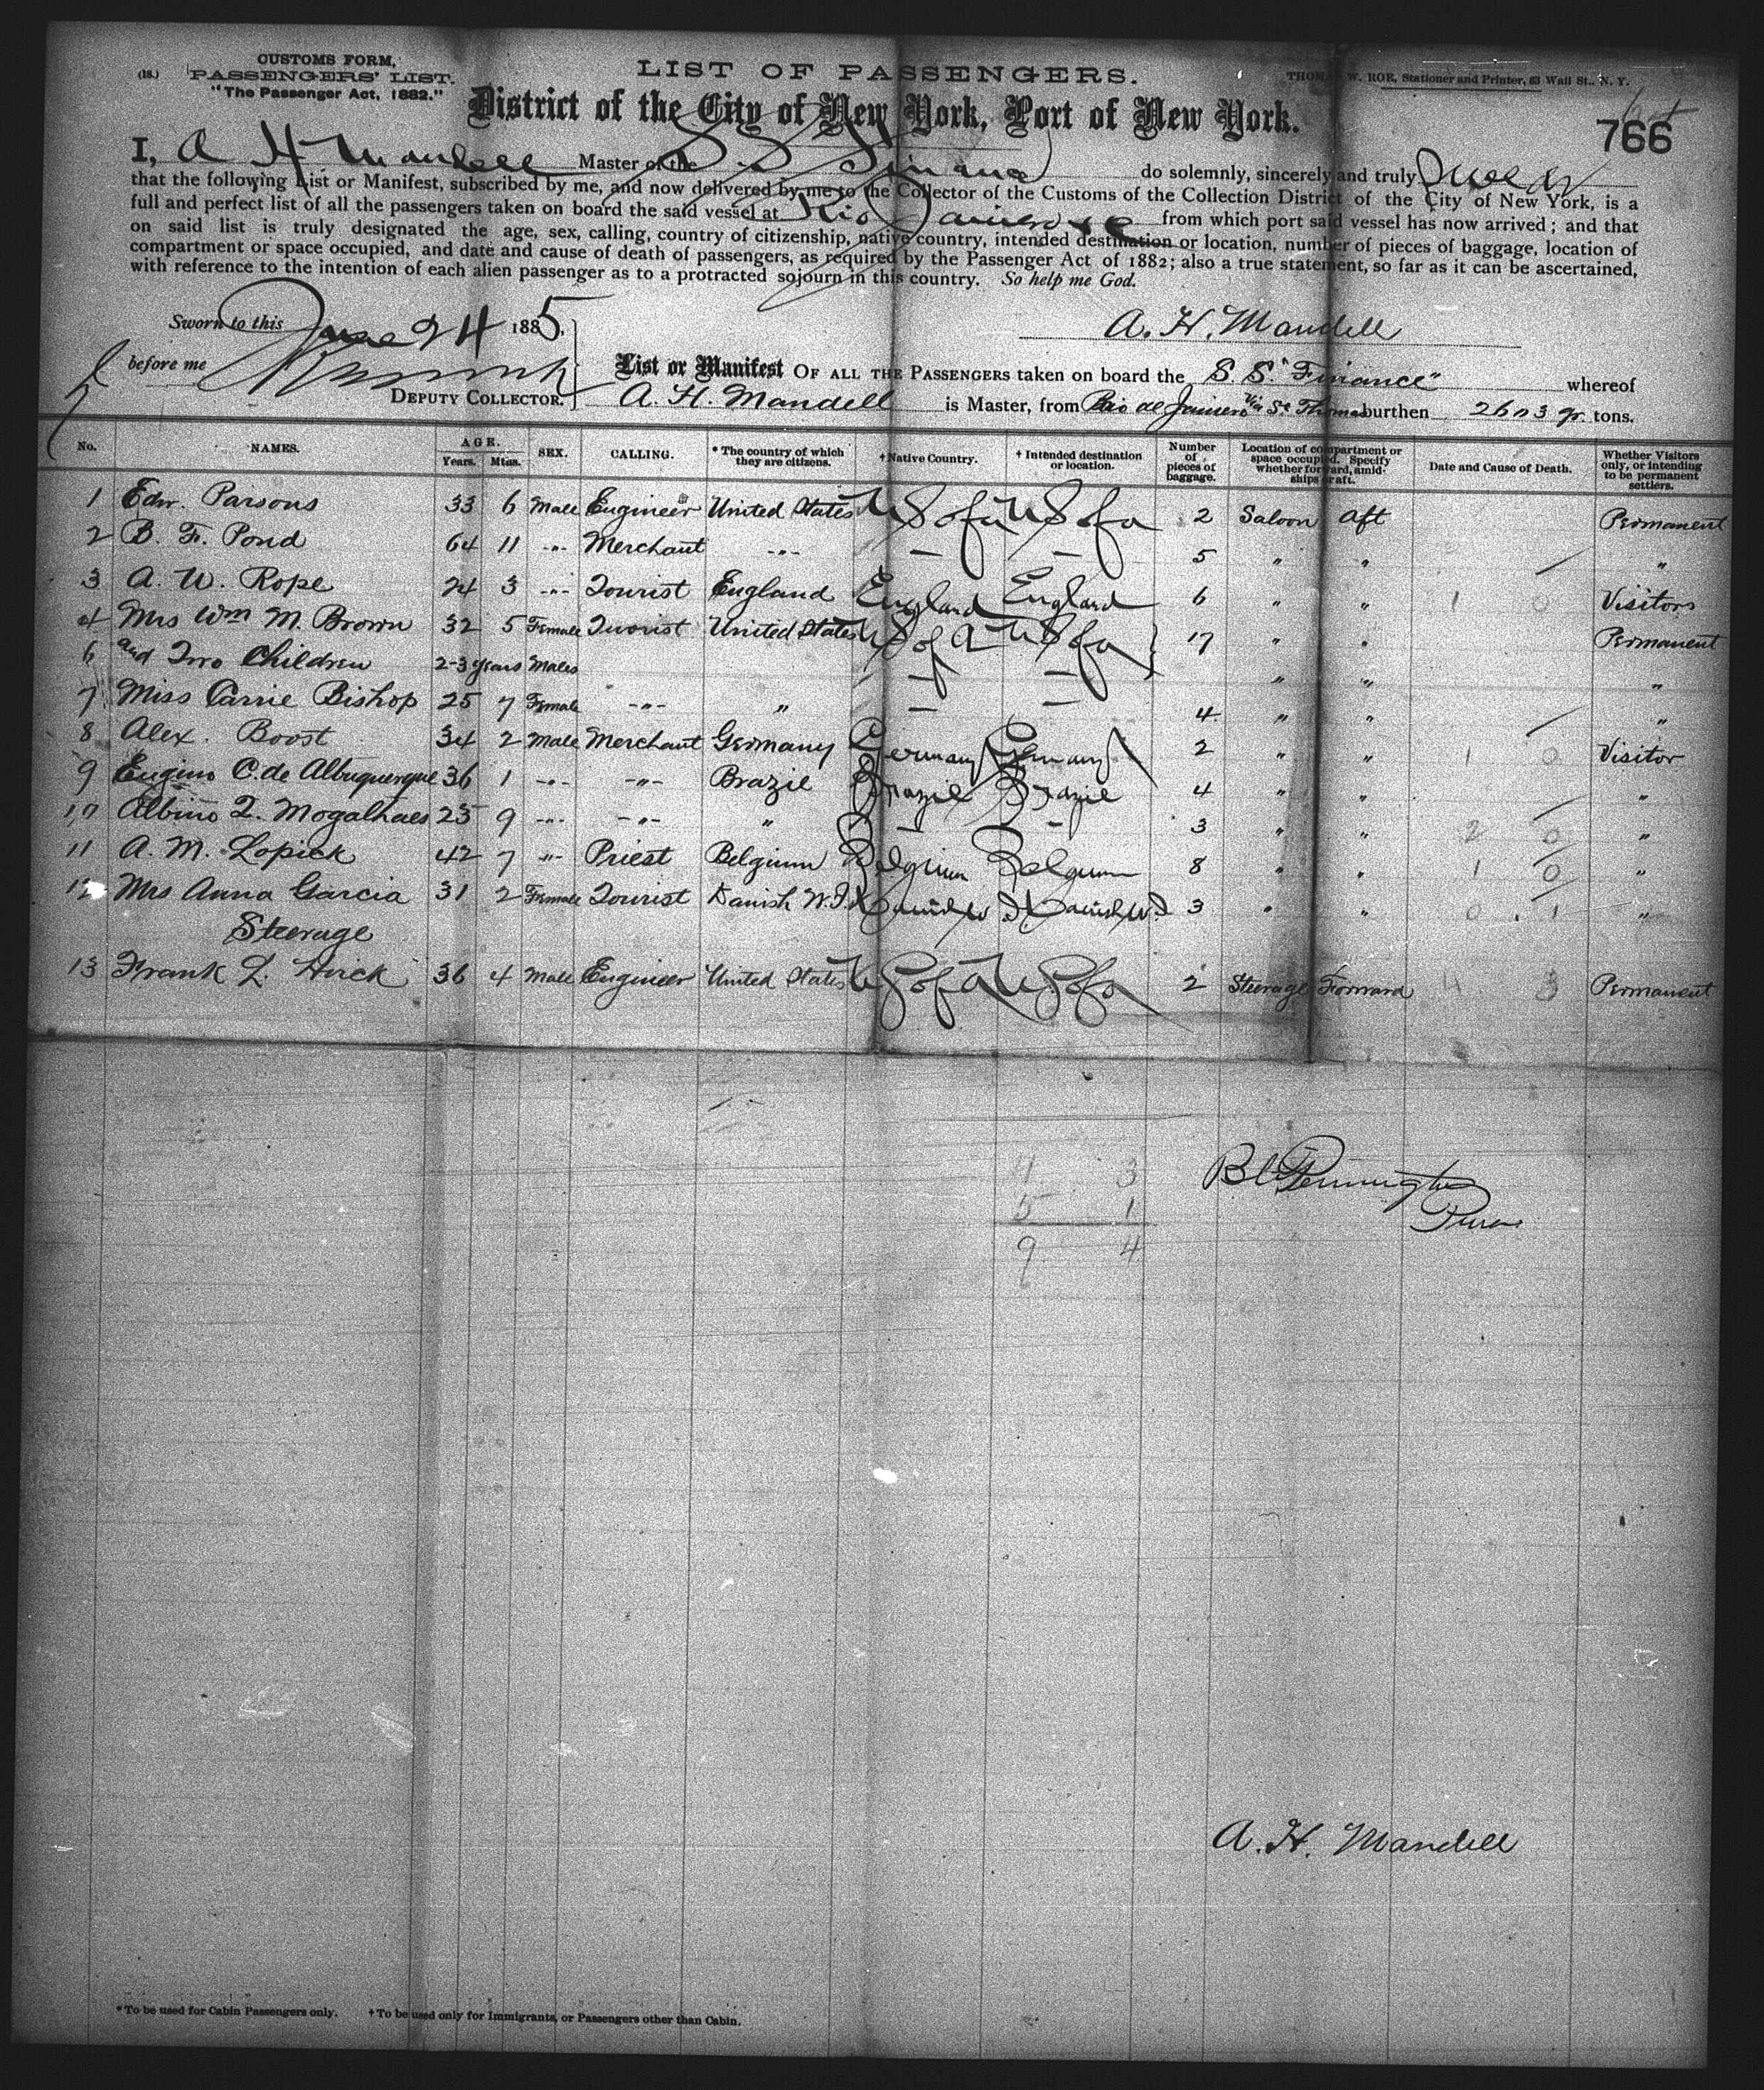 CUSTOMS FORM,
(18.) PASSENGERS' LIST.
"The Passenger Act, 1882."
LIST OF PASSENGERS.
THOMAS W. ROE, Stationer and Printer, 63 Wall St., N. Y.
District of the City of New York, Port of New York.
766
I, A H Mandell Master of the S S Finance do solemnly, sincerely and truly Swear
that the following List or Manifest, subscribed by me, and now delivered by me to the Collector of the Customs of the Collection District of the City of New York, is a
full and perfect list of all the passengers taken on board the said vessel at Rio Janeiro from which port said vessel has now arrived; and that
on said list is truly designated the age, sex, calling, country of citizenship, native country, intended destination or location, number of pieces of baggage, location of
compartment or space occupied, and date and cause of death of passengers, as required by the Passenger Act of 1882; also a true statement, so far as it can be ascertained,
with reference to the intention of each alien passenger as to a protracted sojourn in this country. So help me God.
Sworn to this June 24 1885,
A. H. Mandell
before me
DEPUTY COLLECTOR.
List or Manifest OF ALL THE PASSENGERS taken on board the S. S. "Finance" whereof
A. H. Mandell is Master, from Rio de Janiero via St Thomas burthen 2603 gr. tons.
No. NAMES. AGE. Years. Mths. SEX. CALLING. * The country of which they are citizens. † Native Country. † Intended destination or location. Number of pieces of baggage. Location of compartment or space occupied. Specify whether forward, amidships or aft. Date and Cause of Death. Whether Visitors only, or intending to be permanent settlers.
1 Edw. Parsons 33 6 Male Engineer United States U S of A U S of A 2 Saloon Aft Permanent
2 B. F. Pond 64 11 -"- Merchant -"- — — 5 " " "
3 A. W. Rope 24 3 -"- Tourist England England England 6 " " 1 0 Visitors
4 Mrs Wm M. Brown 32 5 Female Tourist United States U S of A U S of A 17 " " Permanent
6 and Two Children 2-3 years Males — — " " "
7 Miss Carrie Bishop 25 7 Female -"- " — — 4 " " "
8 Alex. Boost 34 2 Male Merchant Germany Germany Germany 2 " " 1 0 Visitor
9 Eugino C. de Albuquerque 36 1 -"- -"- Brazil Brazil Brazil 4 " " "
10 Albino L. Mogalhaes 25 9 -"- -"- " — — 3 " " 2 0 "
11 A. M. Lopick 42 7 -"- Priest Belgium Belgium Belgium 8 " " 1 0 "
12 Mrs Anna Garcia 31 2 Female Tourist Danish W. I. Danish W. I Danish W. I 3 " " 0 1 "
Steerage
13 Frank L. Hick 36 4 Male Engineer United States U S of A U S of A 2 Steerage Forward 4 3 Permanent
4 3
5 1
9 4
Pennington
Purser
A. H. Mandell
* To be used for Cabin Passengers only. † To be used only for Immigrants, or Passengers other than Cabin.